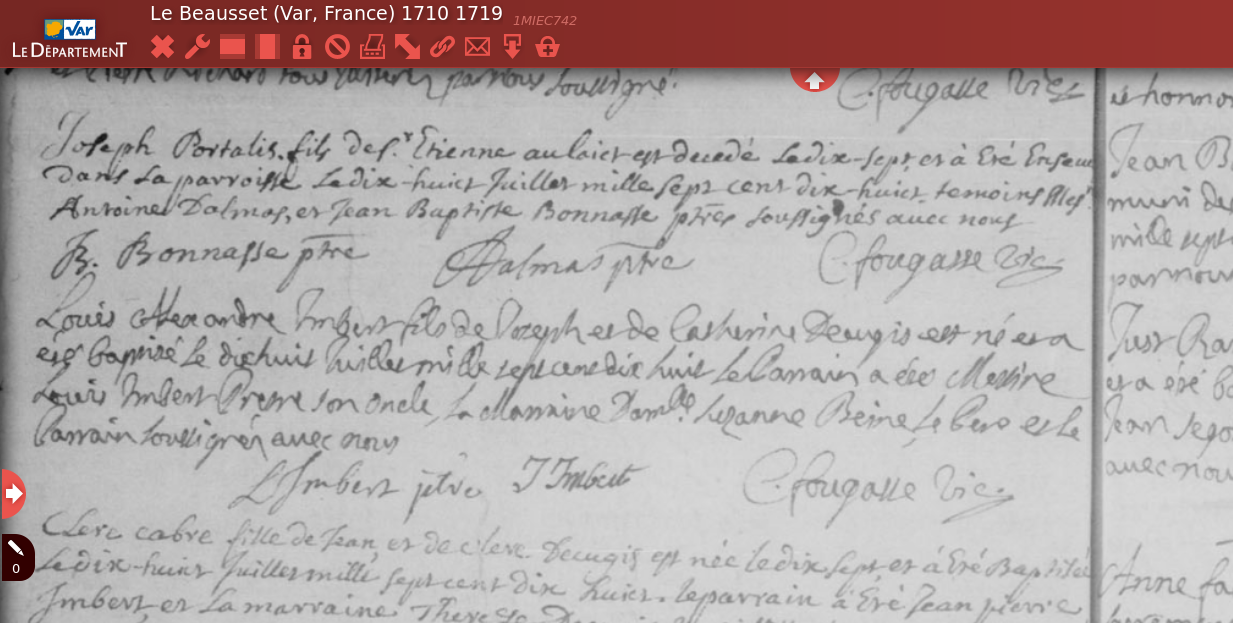 Le Beausset (Var, France) 1710 1719 1MIEC742
VAR
LE DÉPARTEMENT
par nous soussigné. C. fougasse Vic.
et honno
Joseph Portalis fils de Sr. Etienne au laict est decedé Le dix-sept et à Eté Enseue
Dans La parroisse Le dix-huict Juillet mille sept cent dix-huict. temoins Mes.
Antoine Dalmas, et Jean Baptiste Bonnasse ptres soussignés avec nous
B. Bonnasse ptre Dalmas ptre C. fougasse Vic.
Jean B
muni de
mille sept
par nou
Louis Alexandre Imbert fils de Joseph et de Catherine Deugis est né et a
eté baptizé Le dixhuit Juillet mille sept cent dix huit Le Parrain a été Messire
Louis Imbert Prestre son oncle, La Marraine Damlle Suzanne Beine Le Pere et Le
Parrain soussignés avec nous
L Imbert ptre J Imbert C. fougasse Vic.
Just Ra
et a été b
Jean Sego
avec nou
Clere cabre fille de Jean, et de clere Deugis est née le dix sept et à Eté Baptisée
Le dix-huict Juillet mille sept cent dix huict. le parrain à Eté Jean pierre
Imbert et La marraine
Anne fa
0